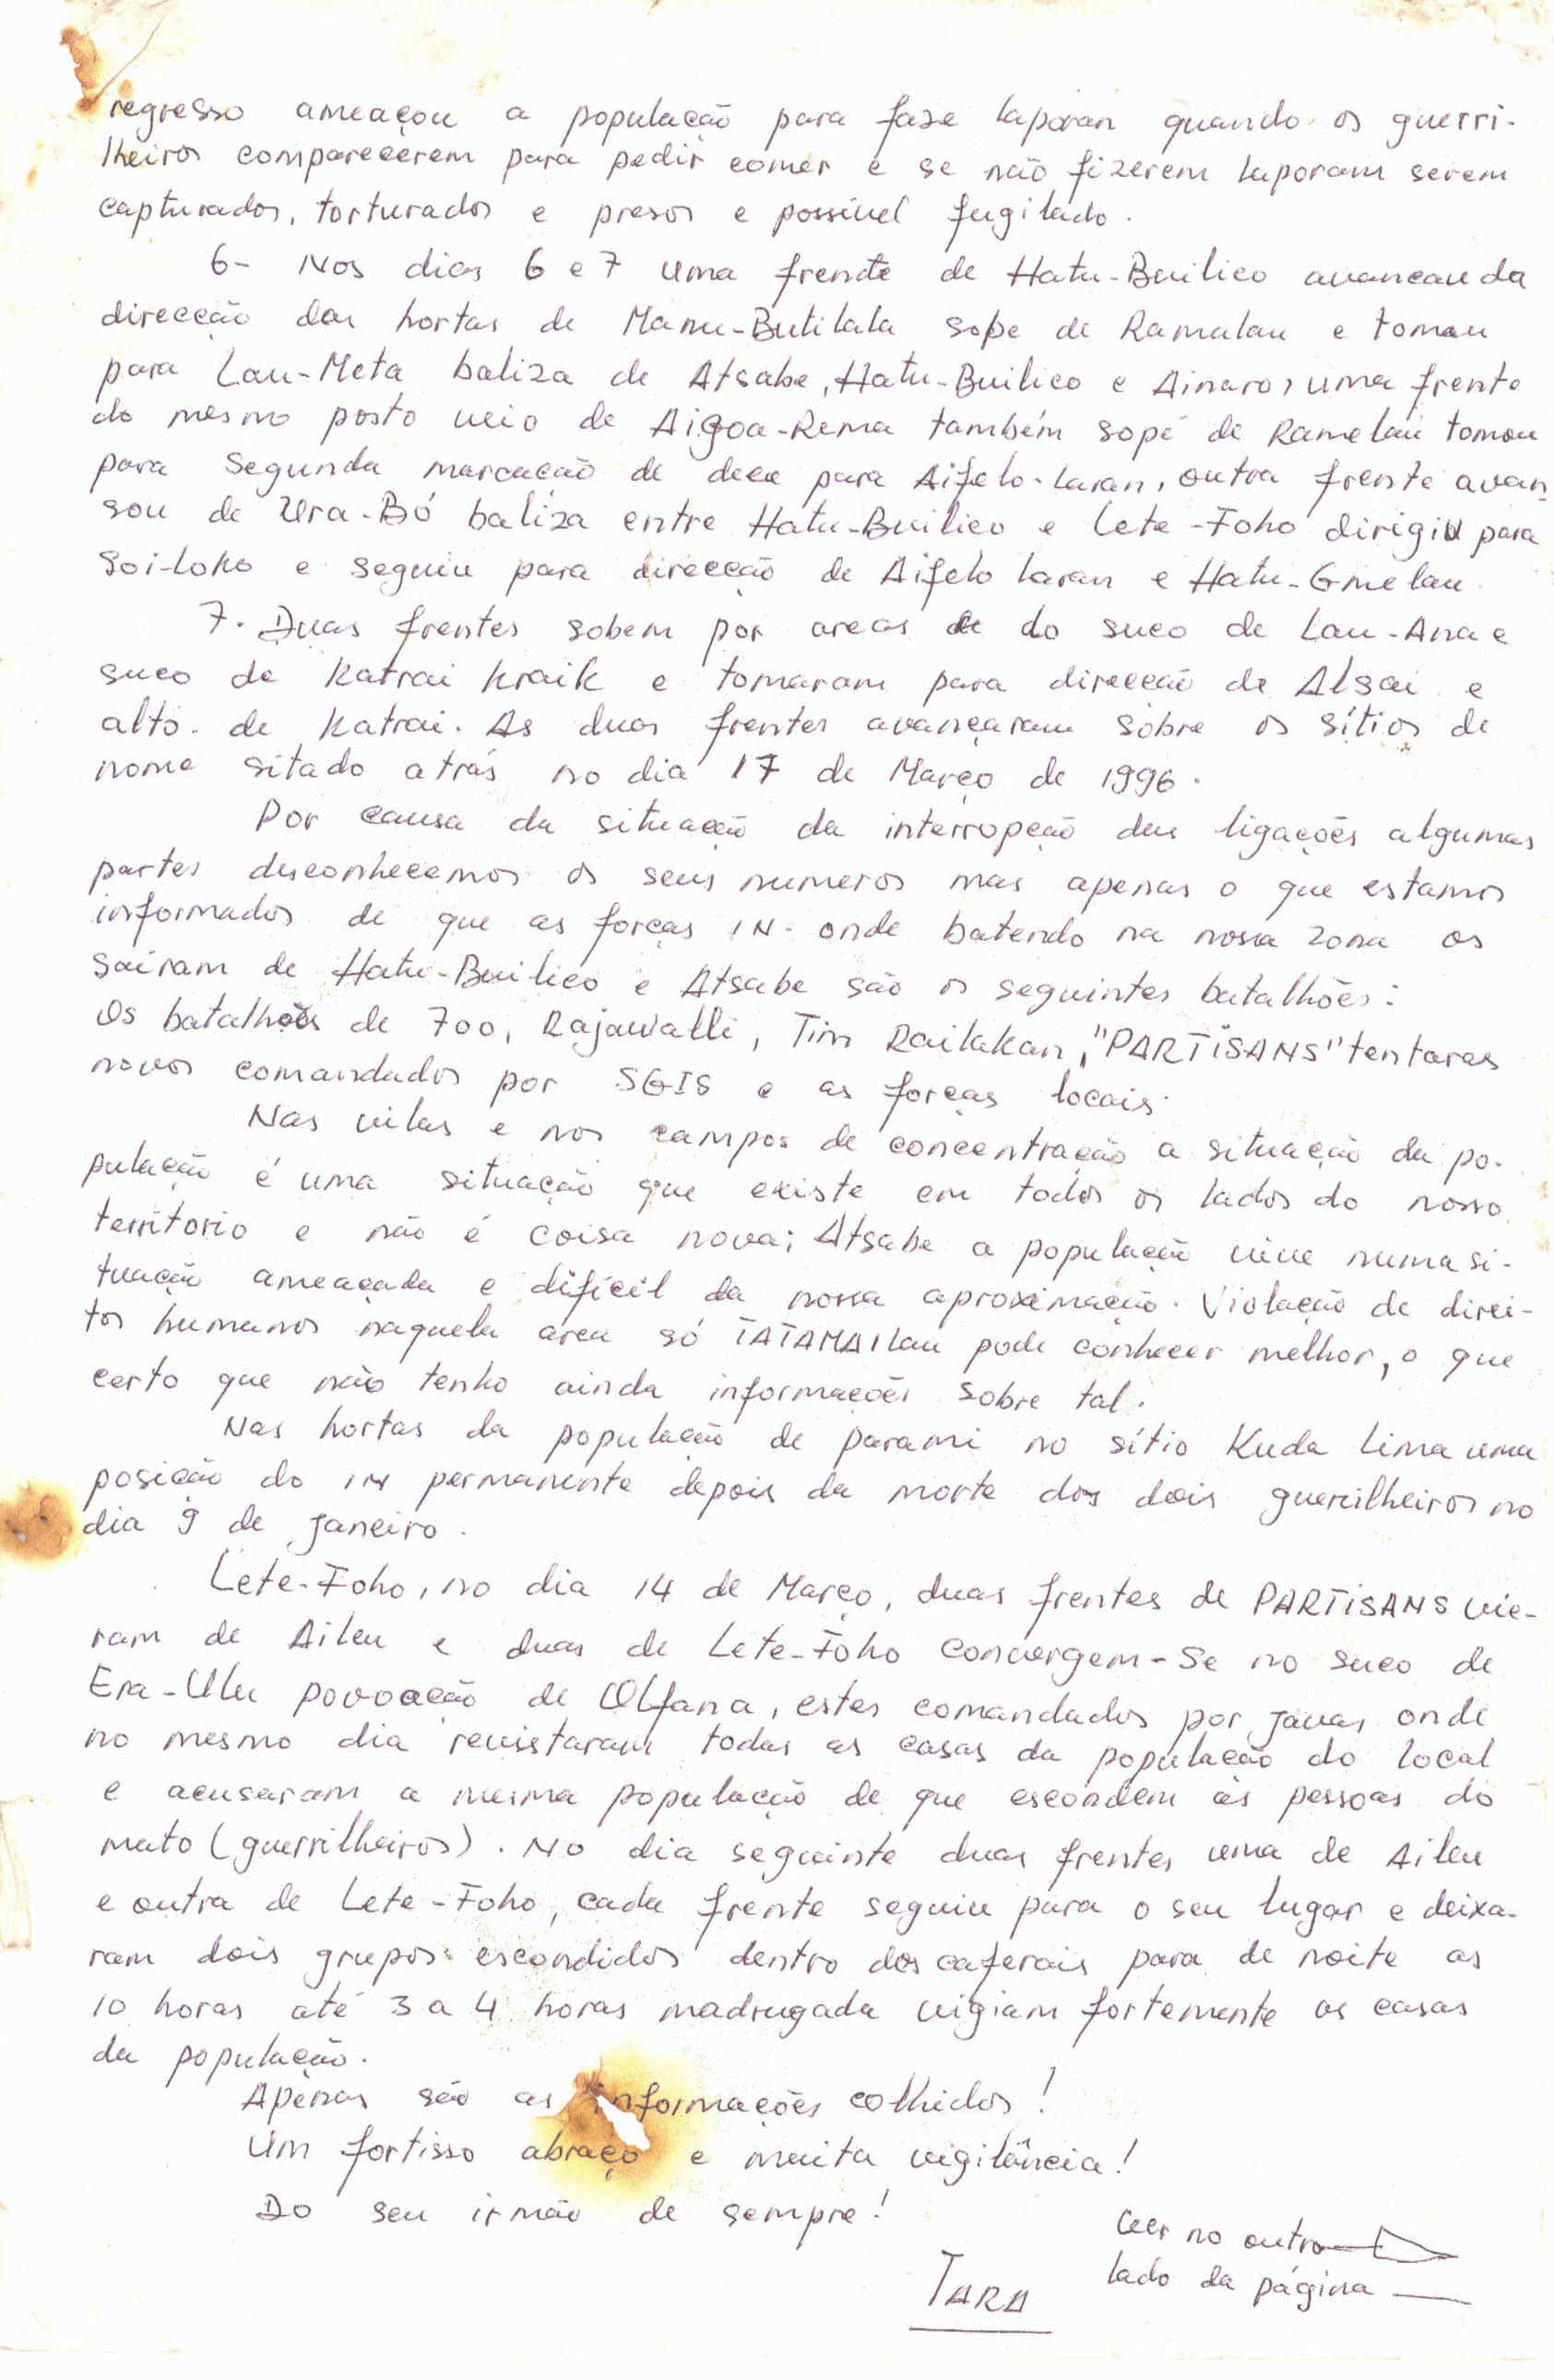 regresso ameaçou a população para faze laporan quando os guerri-
lheiros comparecerem para pedir comer e se não fizerem laporam serem
capturados, torturados e presos e possível fugilado.
6- Nos dias 6 e 7 uma frente de Hatu-Builico avancau da
direcção das hortas de Manu-Butilala sope de Ramalau e tomau
para Lau-Meta baliza de Atsabe, Hatu-Builico e Ainaro, uma frente
do mesmo posto veio de Aigoa-Rema também sopé de Ramelau tomou
para segunda marcação de dece para Aifelo-laran, outra frente avan-
sou de Ura-Bó baliza entre Hatu-Builico e Lete-Foho dirigiu para
Soi-loko e seguiu para direcção de Aifelo laran e Hatu-Gmelau.
7. Duas frentes sobem por areas de do suco de Lau-Ana e
suco de Katrai Kraik e tomaram para direcção de Alsai e
alto de Katrai. As duas frentes avançaram sobre os sítios de
nome sitado atrás no dia 17 de Março de 1996.
Por causa da situação da interropção das ligações algumas
partes desconhecemos os seus numeros mas apenas o que estamos
informados de que as forças IN. onde batendo na nossa zona os
sairam de Hatu-Builico e Atsabe são os seguintes batalhões:
Os batalhões de 700, Rajawalli, Tim Railakan, "PARTISANS" tentaras
novos comandados por SGIS e as forças locais.
Nas vilas e nos campos de concentração a situação da po-
pulação é uma situação que existe em todos os lados do nosso
territorio e não é coisa nova; Atsabe a população vive numa si-
tuação ameaçada e difícil da nossa aproximação. Violação de direi-
tos humanos naquela area só TATAMAILau pode conhecer melhor, o que
certo que não tenho ainda informações sobre tal.
Nas hortas da população de parami no sítio Kuda Lima uma
posição do IN permanente depois da morte dos dois guerrilheiros no
dia 9 de Janeiro.
Lete-Foho, no dia 14 de Março, duas frentes de PARTISANS vie-
ram de Aileu e duas de Lete-Foho convergem-se no suco de
Era-Ulu povoação de Olfana, estes comandados por javas onde
no mesmo dia revistaram todas as casas da população do local
e acusaram a mesma população de que escondem as pessoas do
mato (guerrilheiros). No dia seguinte duas frentes uma de Aileu
e outra de Lete-Foho, cada frente seguiu para o seu lugar e deixa-
ram dois grupos escondidos dentro dos caferais para de noite as
10 horas até 3 a 4 horas madrugada vigiam fortemente as casas
da população.
Apenas são as informações colhidos!
Um fortisso abraço e muita vigilância!
Do seu irmão de sempre!
Leer no outro
lado da página
TARA